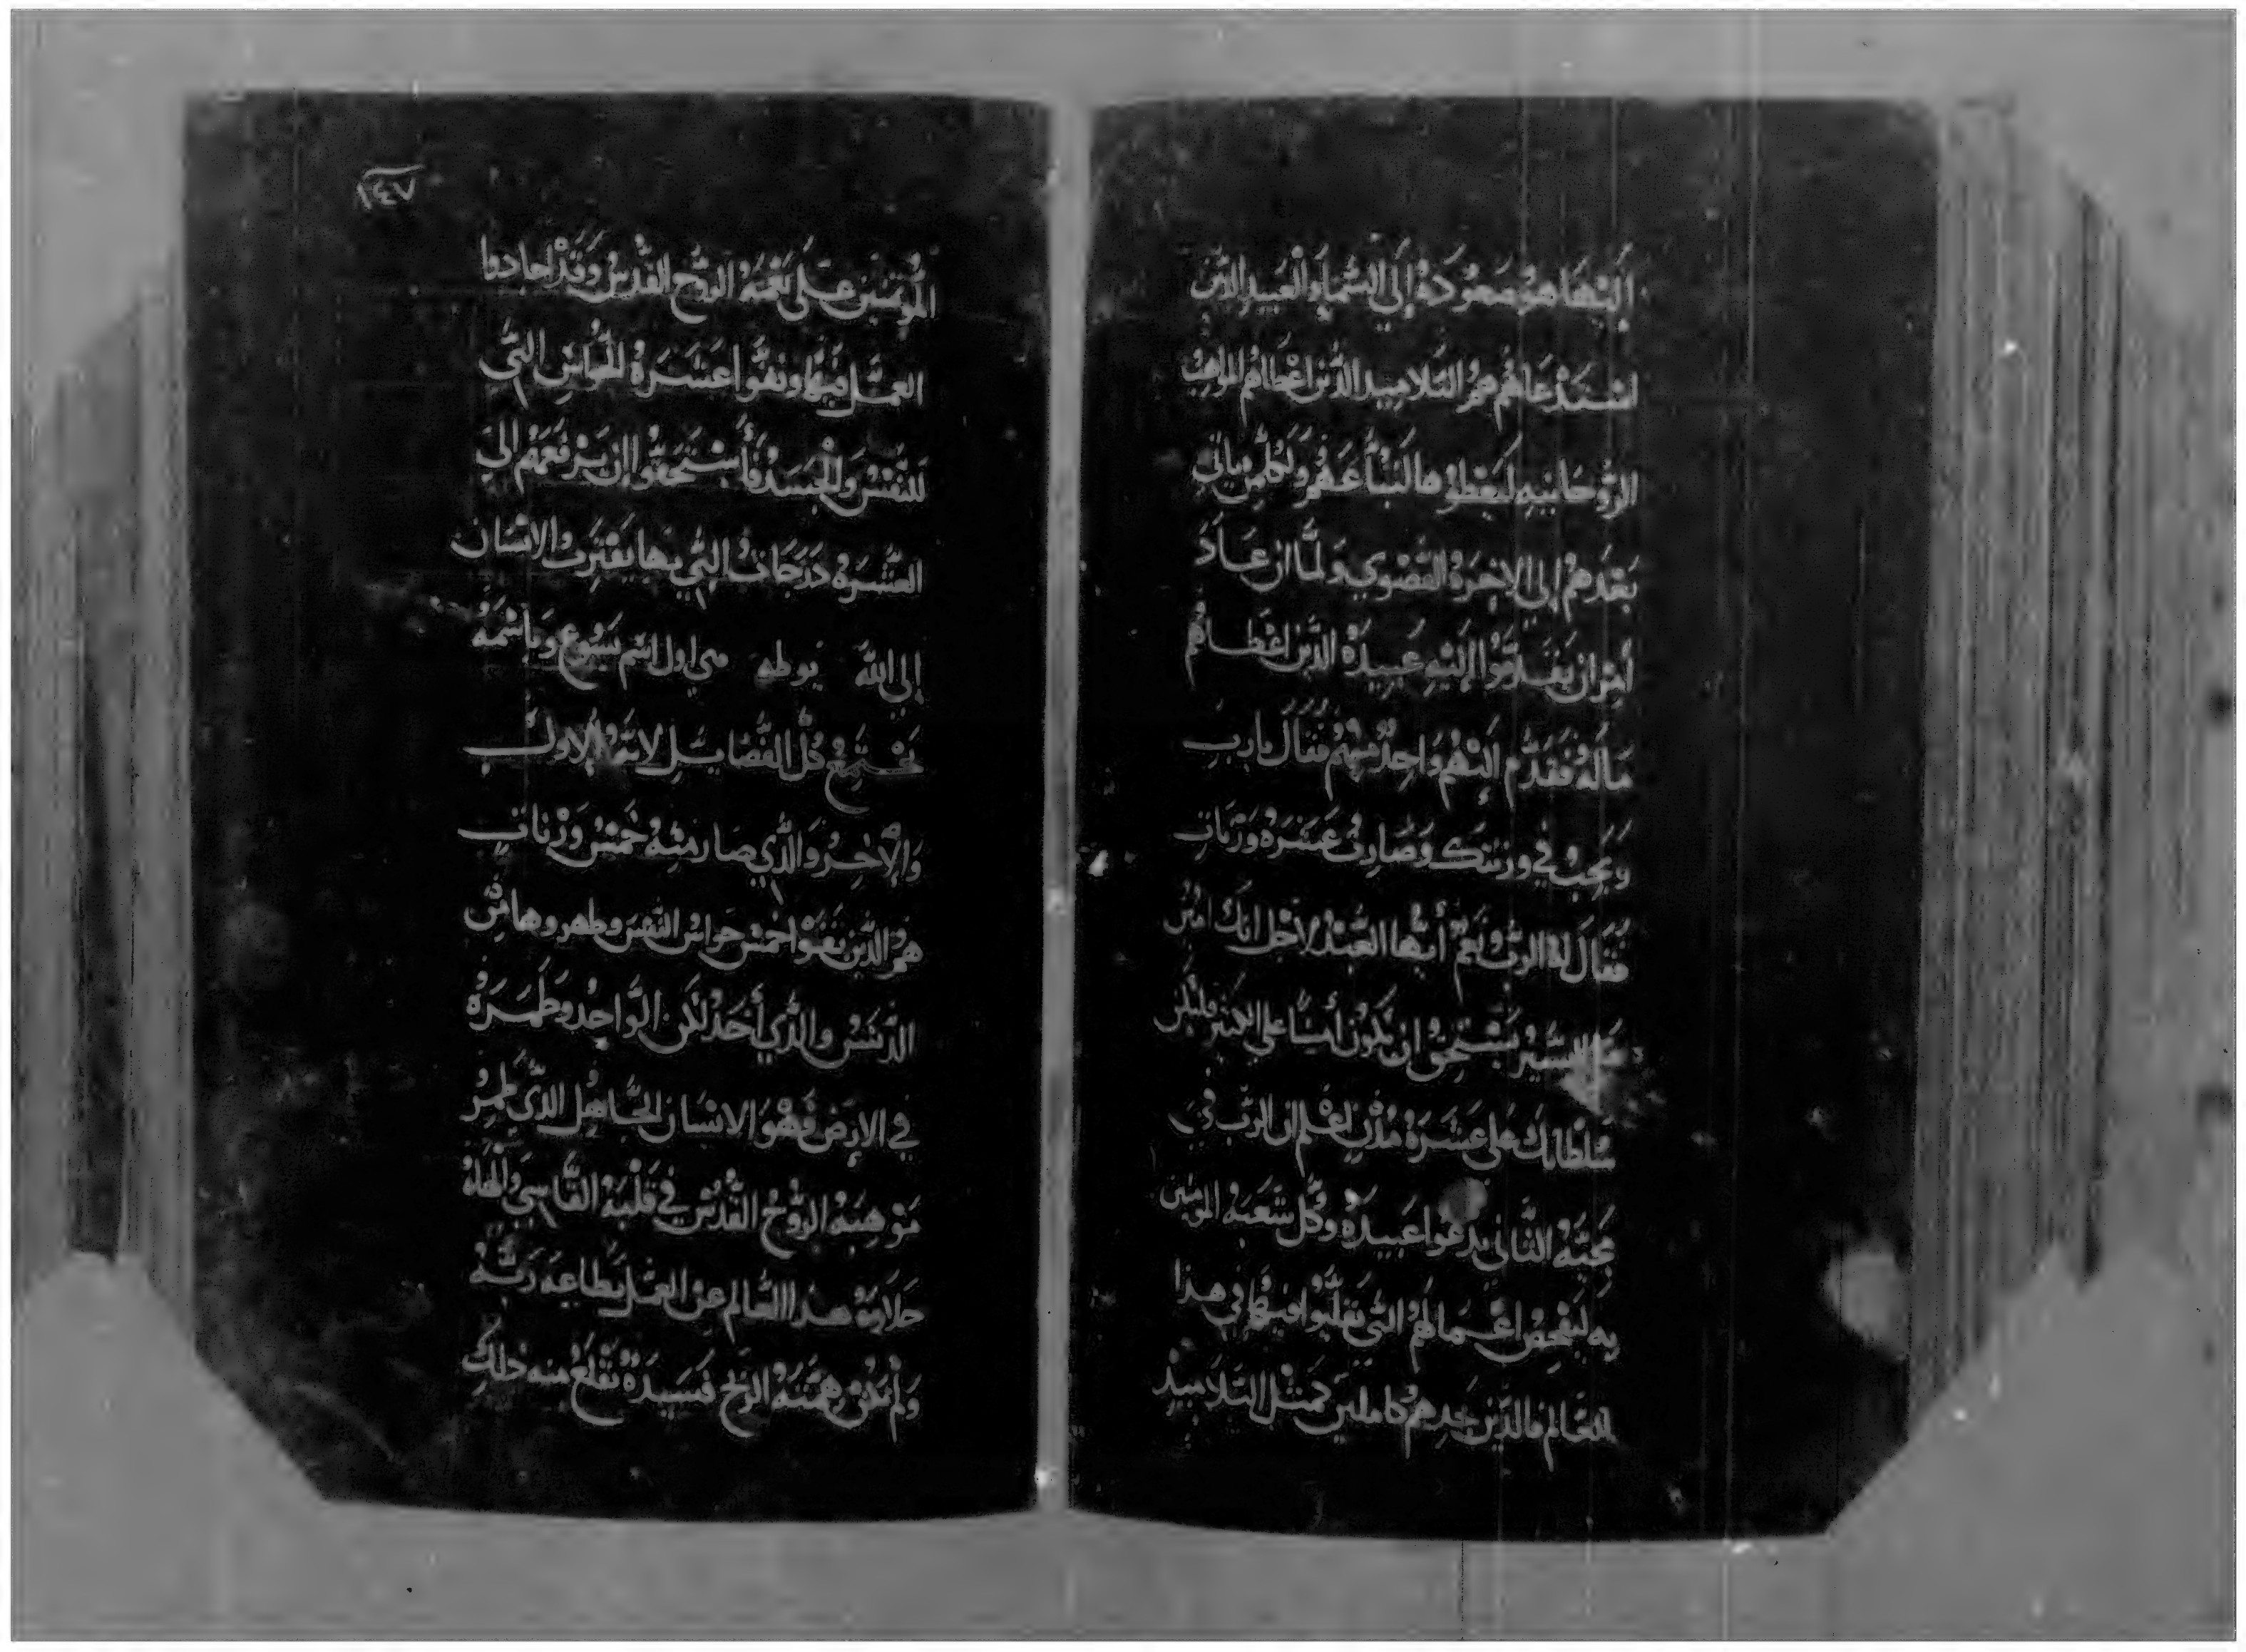 إليها هو صعوده إلى السماء والعبيد الدين
استدعاهم هم التلاميد الدين اعطاهم المواهب
الروحانيه ليعطوها لتباعهم ولكل من ياتي
بعدهم إلي الاخرة القصوي ولما ان عاد
أمر ان يقدموا إليه عبيده الدين اعطاهم
ماله فتقدم إليهم واحد منهم فقال يارب
ربحت في وزنتك وصارت عشرة وزنات
فقال له الرب نعم أيها العبد لاجل انك امين
علي اليسير تستحق ان تكون أمينا علي الكثير وليكن
سلطانك علي عشرة مدن اعلم ان الرب في
مجيه الثاني يدعوا عبيده وكل شعبه المومنين
به ليفحص اعمالهم التي تقلبوا فيها في هذا
العالم فالدين يجدهم كاملين كمثل التلاميد
١٤٧
المومنين علي نعمة الروح القدس وقد اجادوا
العمل فيها ونقوا عشرة الحواس التي
للنفس والجسد فاستحقوا ان يرفعهم الي
العشرة درجات التي بها يقترب الانسان
إلي الله يوطه هي اول اسم يسوع وباسمه
تجتمع كل الفضايل لانه الاول
والاخر والذي صار منه خمس وزنات
هم الدين نقوا خمس حواس النفس وطهروها من
الدنس والذي أخد لكن الواحد وطمره
في الارض فهو الانسان الجاهل الذي طمر
موهبة الروح القدس في قلبه القاسي والهاه
حلاوة هدا العالم عن العمل بطاعة ربه
ولم تكن همته الربح فسيده تقلع منه دلك